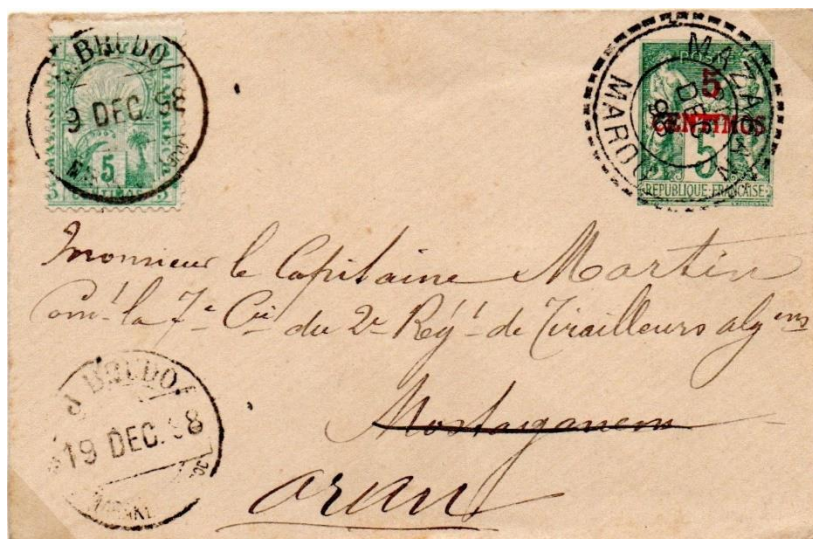 J. BRUDO
9 DEC. 98
5
CENTIMOS
MAZAGAN
DEC
98
MAROC
5
CENTIMOS
5
REPUBLIQUE FRANCAISE
Monsieur le Capitaine Martin
Com.t la 7e Cie du 2e Rég.t de Tirailleurs alg.ens
Mostaganem
Oran
J. BRUDO
19 DEC. 98